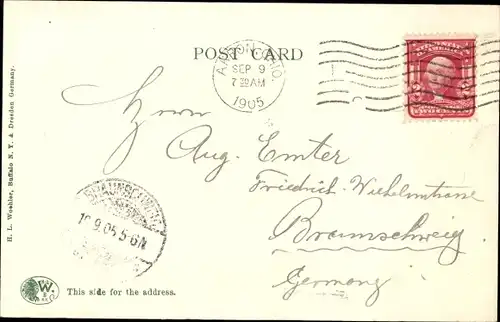 POST CARD
AKRON, OHIO.
SEP 9
7 30 AM
1905
TWO CENTS
Herrn
Aug. Emter
Friedrich-Wilhelmstrasse
Braunschweig
Germany
BRAUNSCHWEIG
19.9.05.5-6N
H. L. Woehler, Buffalo N. Y. & Dresden Germany.
W.
This side for the address.